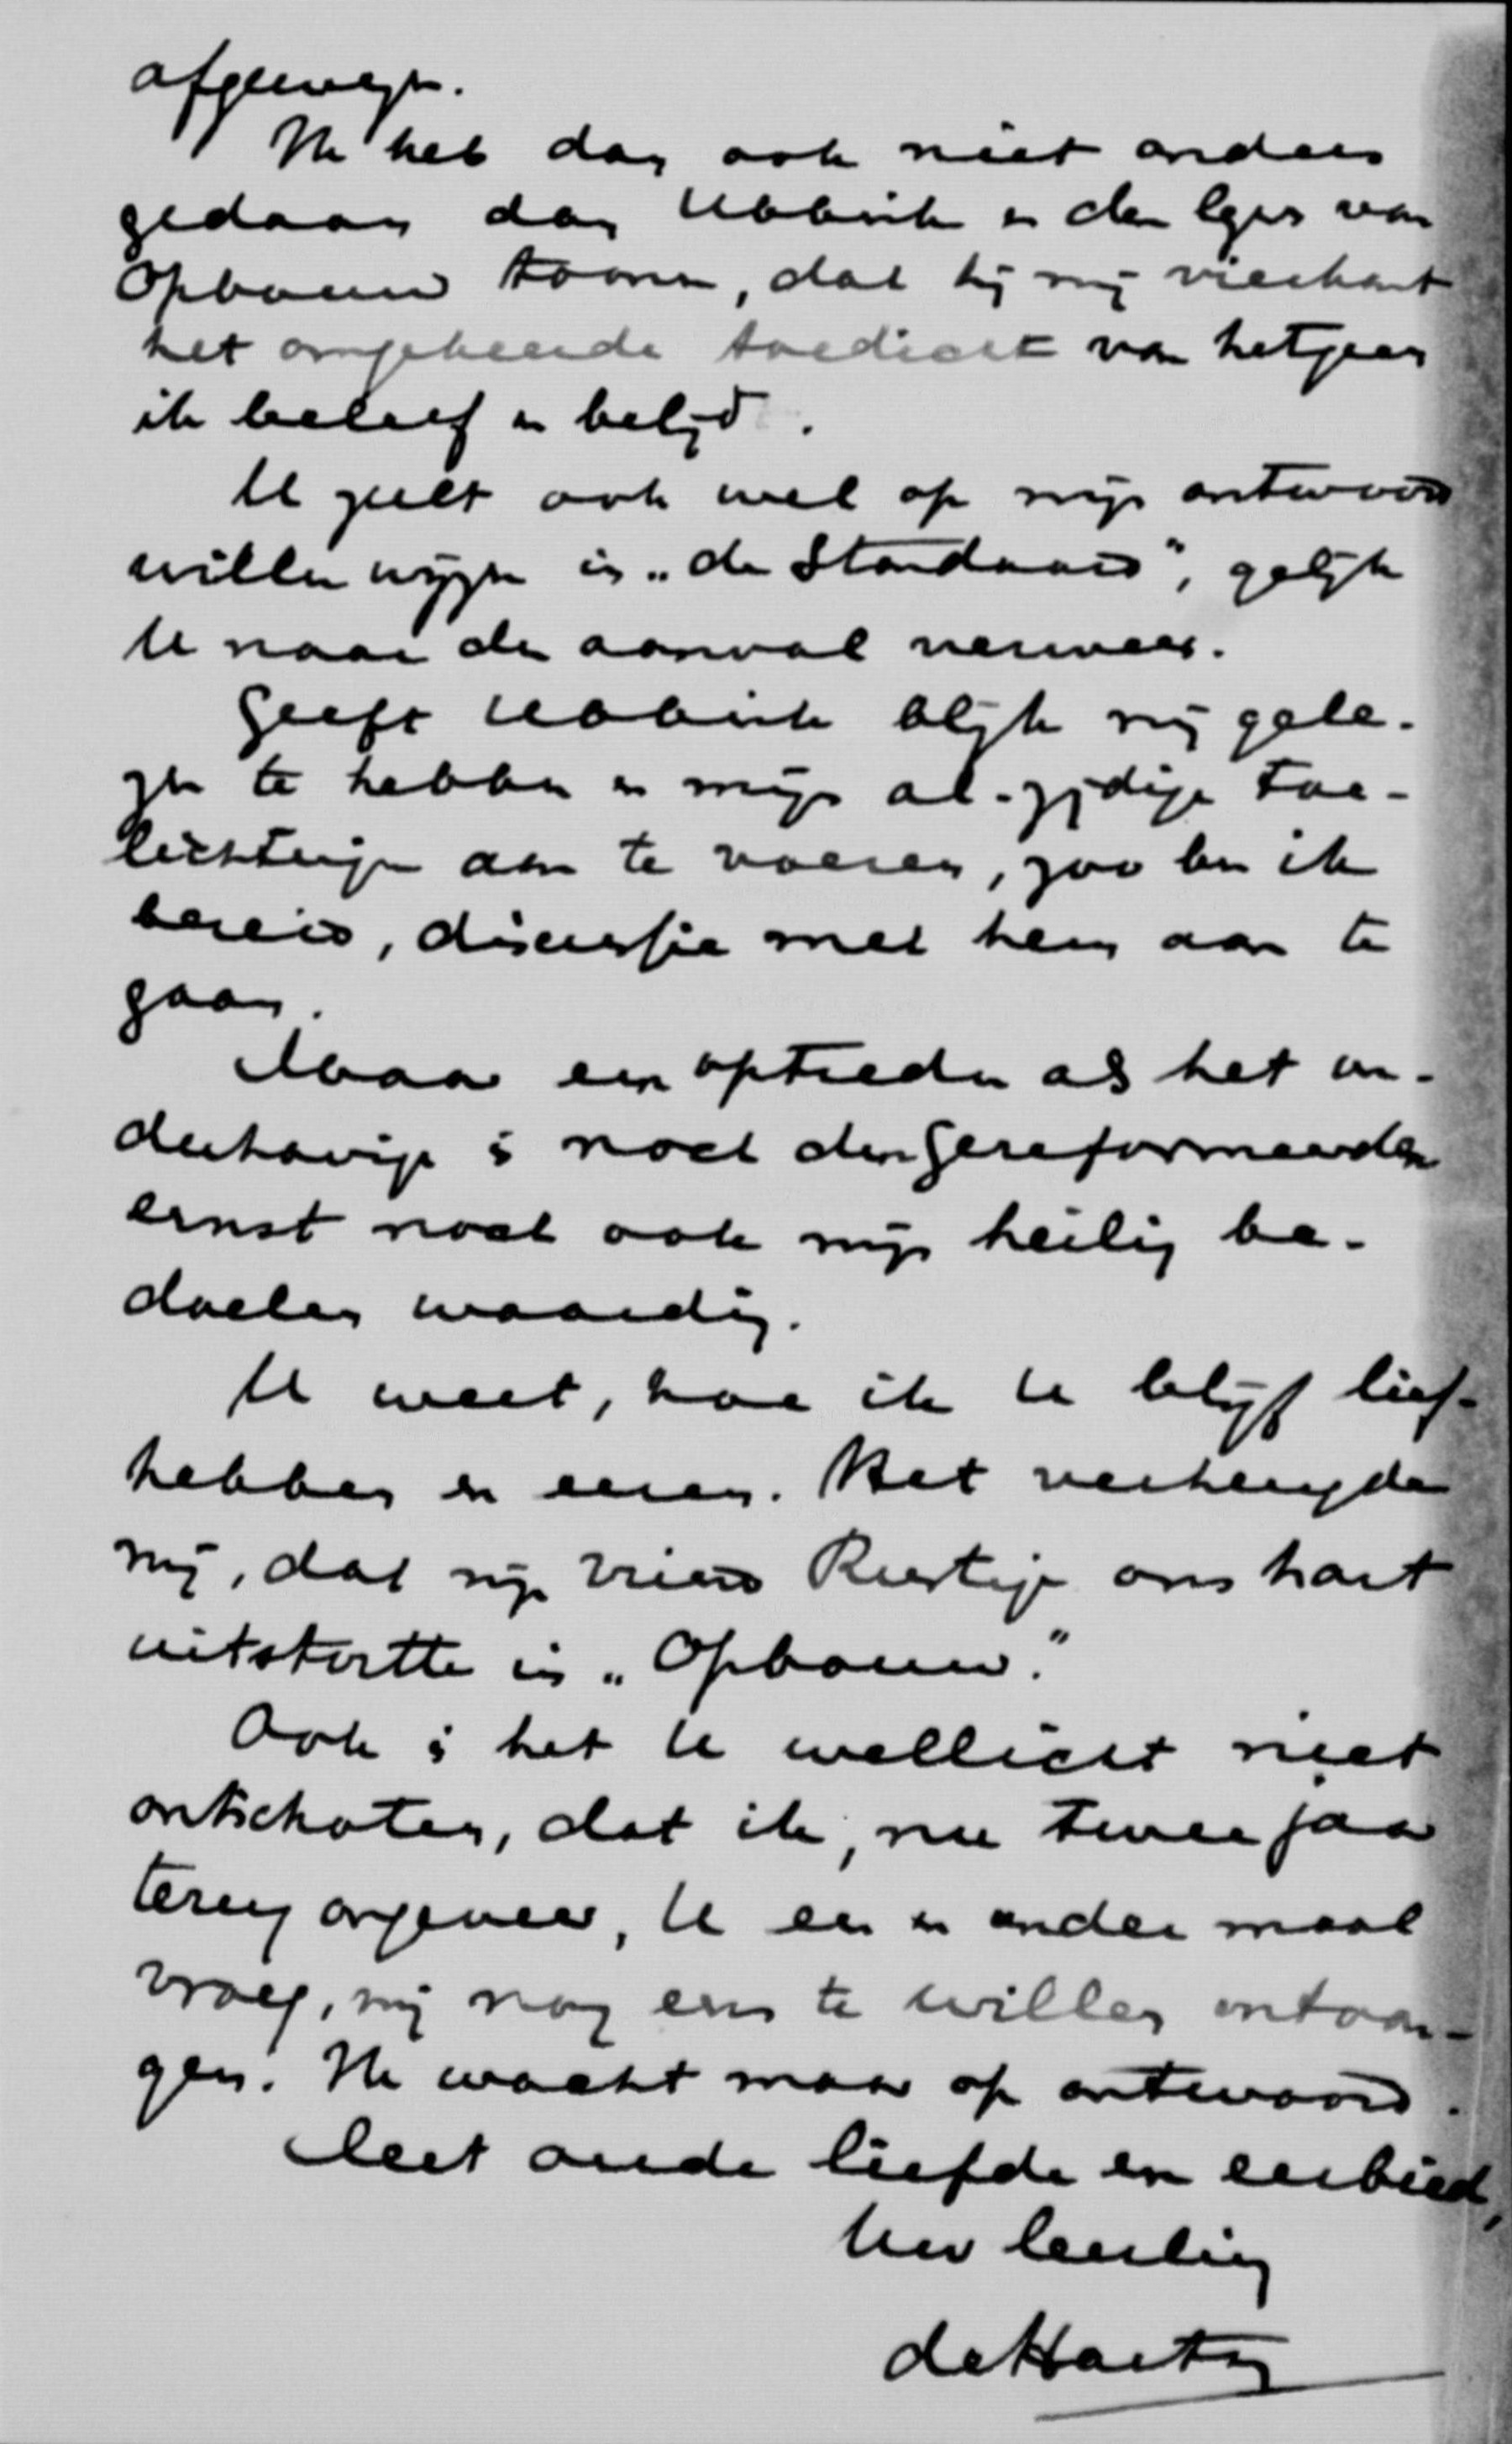 afgewezen.
Ik heb dan ook niet anders
gedaan dan Ubbink en den lezers van
Opbouw toonen, dat hij mij vierkant
het omgekeerde toedicht van hetgeen
ik beleef en belijd.
U zult ook wel op mijn antwoord
willen wijzen in „de Standaard", gelijk
U naar den aanval verwees.
Geeft Ubbink blijk mij gele-
zen te hebben en mijn al-zijdige toe-
lichtingen aan te voeren, zoo ben ik
bereid, discussie met hem aan te
gaan.
Maar een optreden als het on-
derhavige is noch den Gereformeerden
ernst noch ook mijn heilig be-
doelen waardig.
U weet, hoe ik U blijf lief-
hebben en eeren. Het verheugde
mij, dat mijn vriend Rustige ons hart
uitstortte in „Opbouw."
Ook is het U wellicht niet
ontschoten, dat ik, nu twee jaar
terug ongeveer, U een en ander maal
vroeg, mij nog eens te willen ontvan-
gen. Ik wacht maar op antwoord.
Met oude liefde en eerbied,
Uw leerling
de Hartog